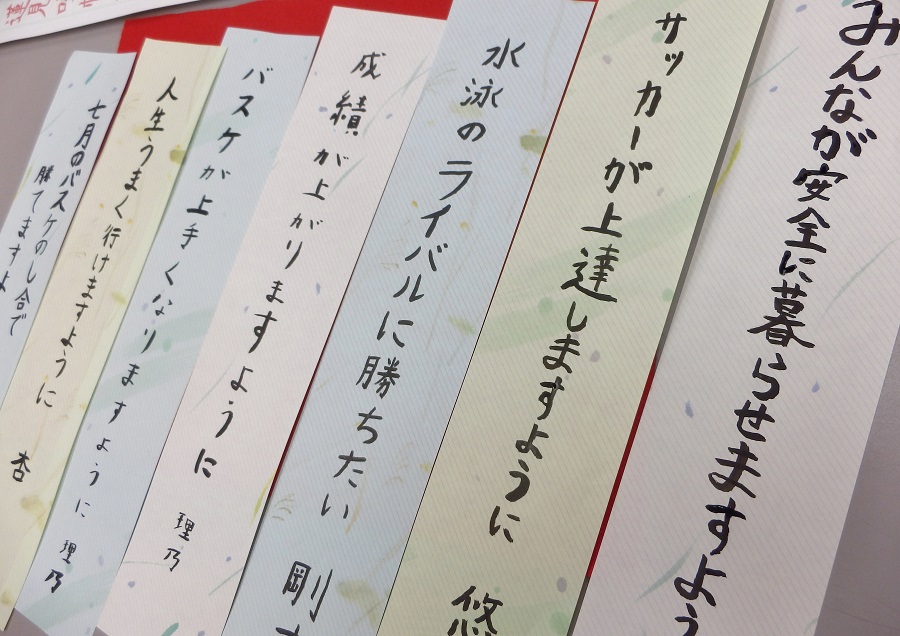 みんなが安全に暮らせますよう
サッカーが上達しますように 悠
水泳のライバルに勝ちたい 剛
成績が上がりますように 理乃
バスケが上手くなりますように 理乃
人生うまく行けますように 杏
七月のバスケのし合で
勝てますよ